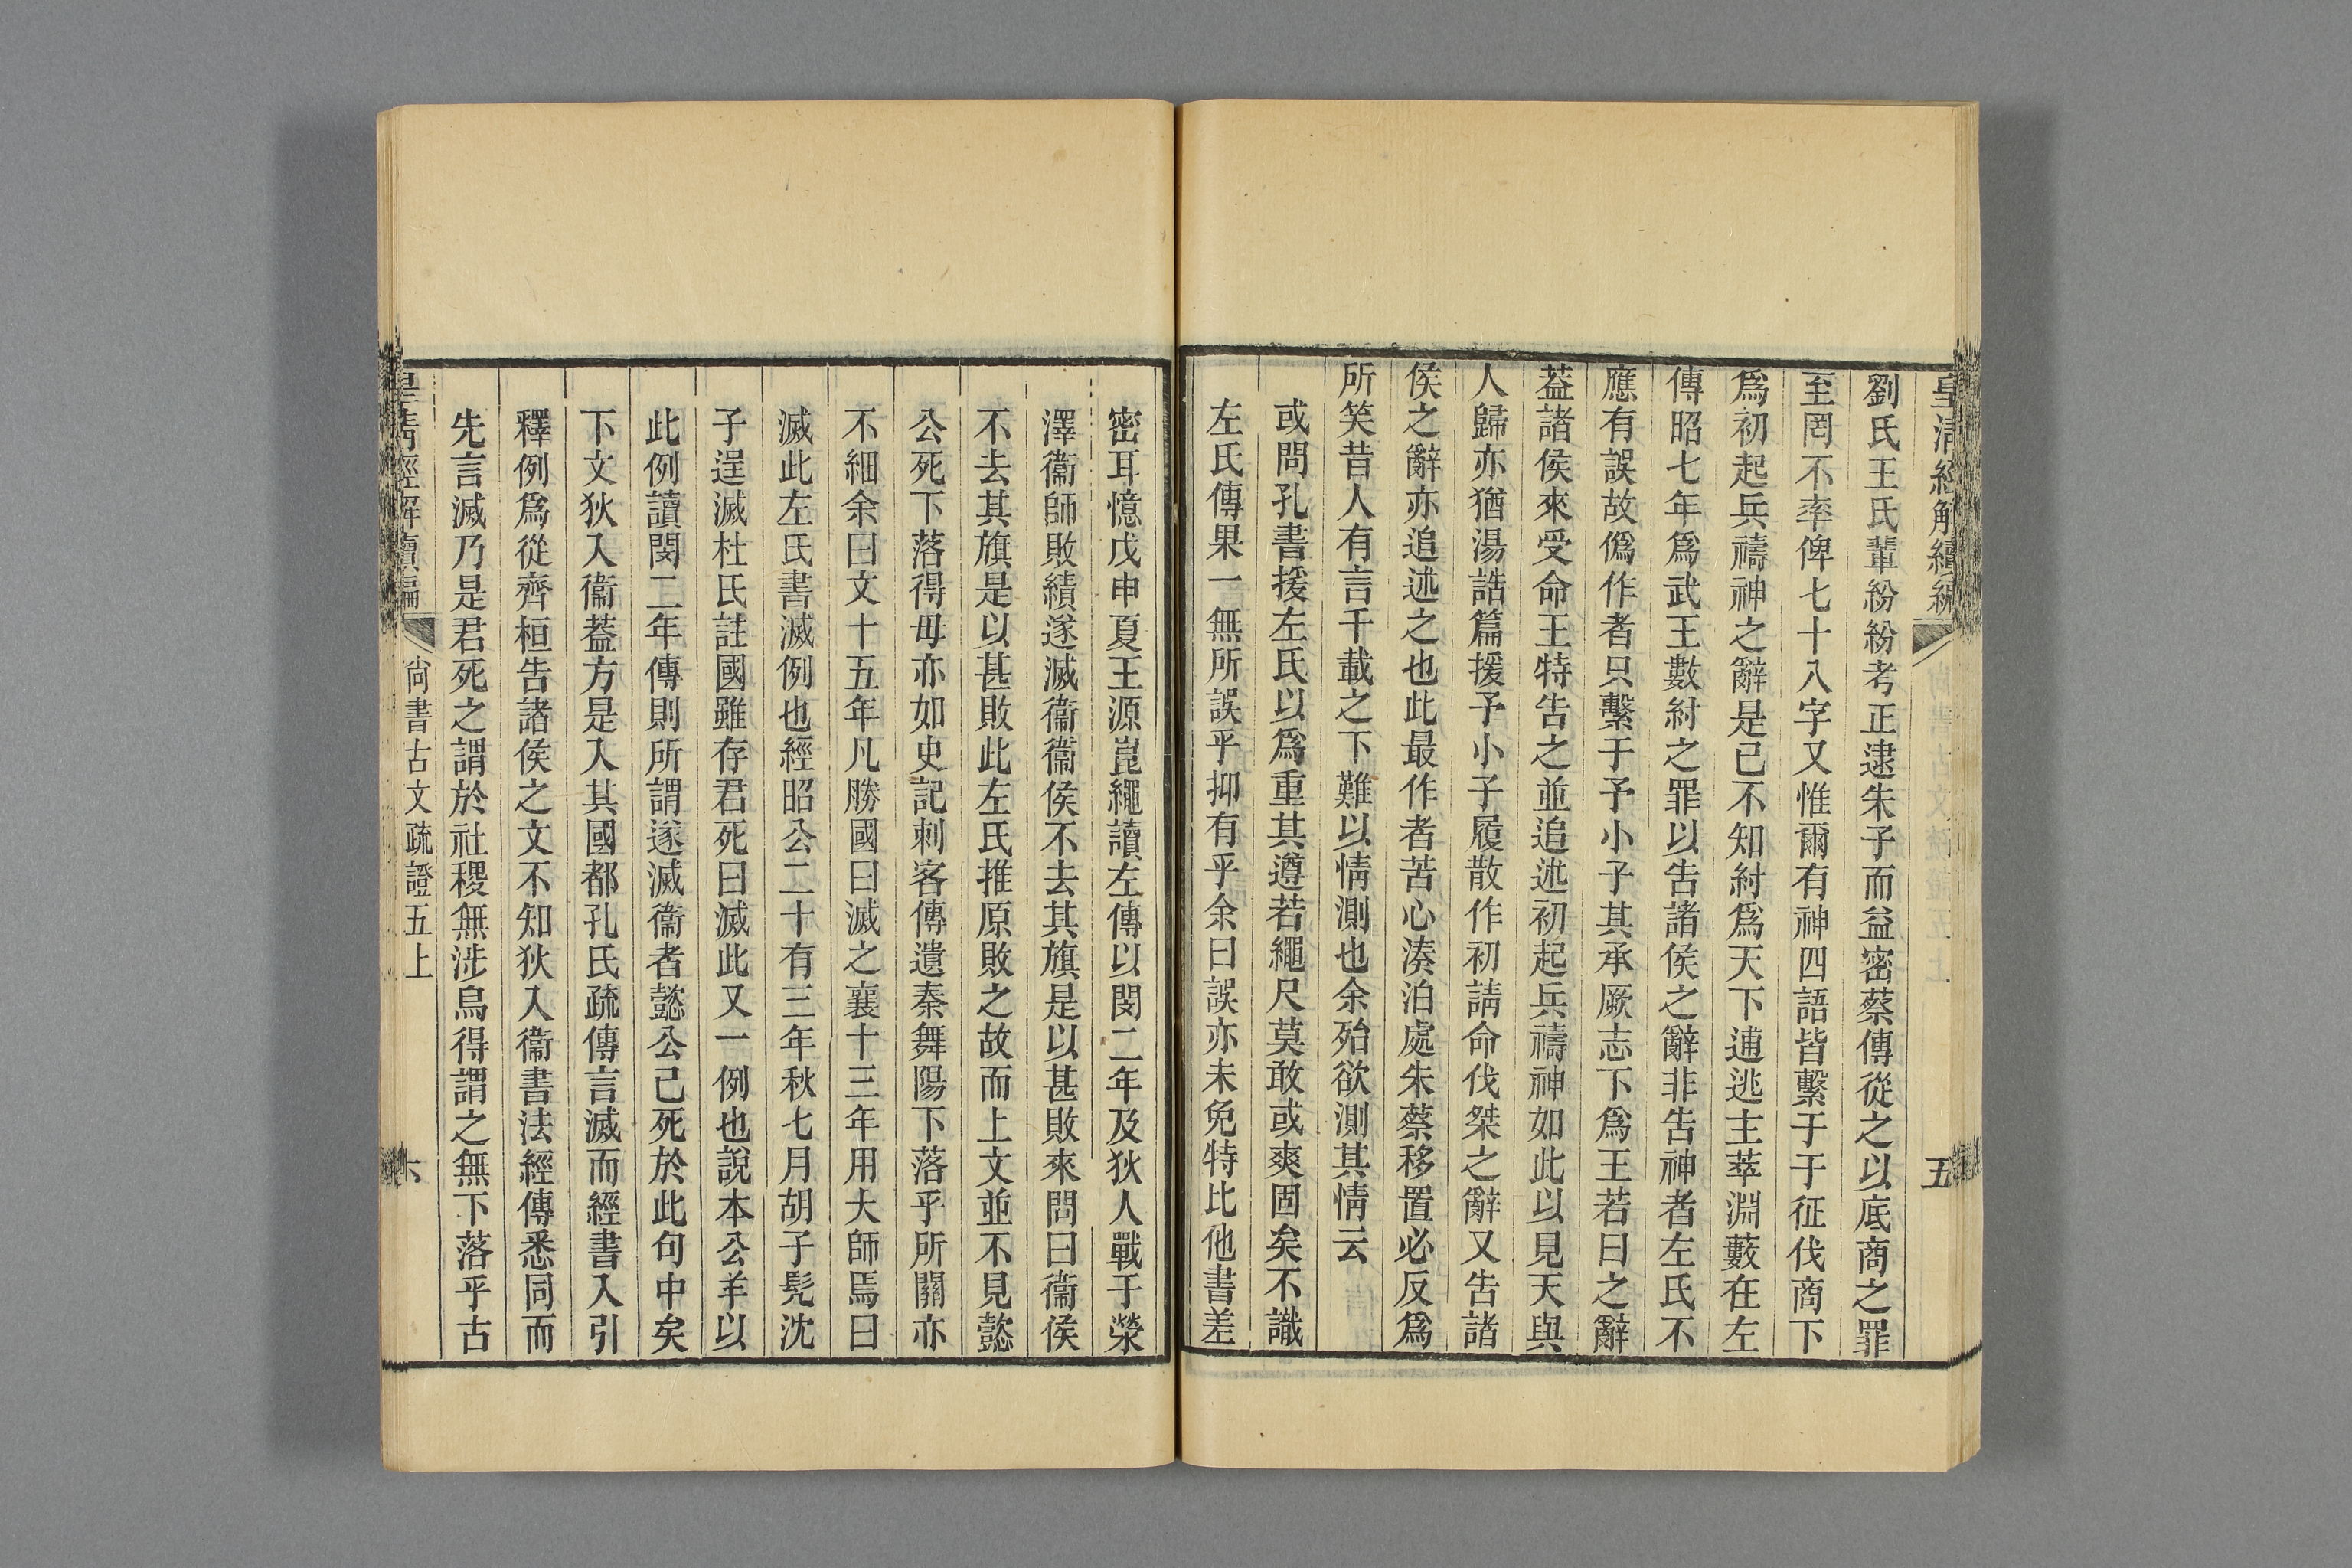 皇清經解續編
五
劉氏王氏輩紛紛考正逮朱子而益密蔡傳從之以底商之罪
至罔不率俾七十八字又惟爾有神四語皆繫于于征伐商下
爲初起兵禱神之辭是已不知紂爲天下逋逃主萃淵藪在左
傳昭七年爲武王數紂之罪以告諸侯之辭非告神者左氏不
應有誤故僞作者只繫于予小子其承厥志下爲王若曰之辭
葢諸侯來受命王特告之並追述初起兵禱神如此以見天與
人歸亦猶湯誥篇援予小子履散作初請命伐桀之辭又告諸
侯之辭亦追述之也此最作者苦心湊泊處朱蔡移置必反爲
所笑昔人有言千載之下難以情測也余殆欲測其情云
或問孔書援左氏以爲重其遵若繩尺莫敢或爽固矣不識
左氏傳果一無所誤乎抑有乎余曰誤亦未免特比他書差
密耳憶戊申夏王源崑繩讀左傳以閔二年及狄人戰于滎
澤衞師敗績遂滅衞衞侯不去其旗是以甚敗來問曰衞侯
不去其旗是以甚敗此左氏推原敗之故而上文並不見懿
公死下落得毋亦如史記刺客傳遺秦舞陽下落乎所關亦
不細余曰文十五年凡勝國曰滅之襄十三年用大師焉曰
滅此左氏書滅例也經昭公二十有三年秋七月胡子髡沈
子逞滅杜氏註國雖存君死曰滅此又一例也說本公羊以
此例讀閔二年傳則所謂遂滅衞者懿公已死於此句中矣
下文狄入衞葢方是入其國都孔氏疏傳言滅而經書入引
釋例爲從齊桓告諸侯之文不知狄入衞書法經傳悉同而
先言滅乃是君死之謂於社稷無涉烏得謂之無下落乎古
皇清經解續編
尚書古文疏證五上
六